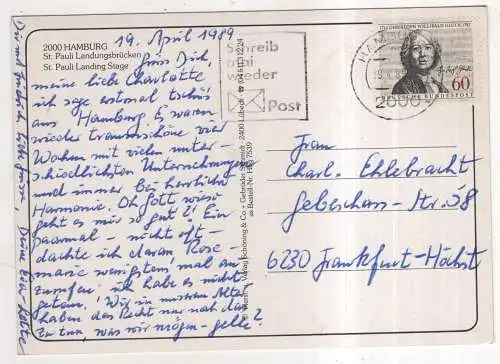 19. April 1989
2000 HAMBURG
St. Pauli Landungsbrücken
St. Pauli Landing Stage
Grüß Dich,
meine liebe Charlotte
ich sage erstmal tschüs
aus Hamburg. Es waren
wieder traumschöne vier
Wochen mit vielen unter-
schiedlichsten Unternehmungen
und immer bei herrlicher
Harmonie. Oh Gott wieso
geht es mir so gut? Ein
paarmal - nicht oft -
dachte ich daran, Rose-
marie wenigstens mal an-
zurufen; ich habe es nicht
getan! Wir in unserem Alter
haben das Recht nur noch das
zu tun, was wir mögen - gelle?
Schreib
mal
wieder
Post
HAMBURG
2000
CHRISTOPH WILLIBALD GLUCK
60
DEUTSCHE BUNDESPOST
Frau
Charl. Ehlebracht
Gebeschus-Str. 58
6230 Frankfurt-Höchst
Verlag Schöning & Co + Gebrüder Schmidt · 2400 Lübeck
Bestell-Nr.
Deine